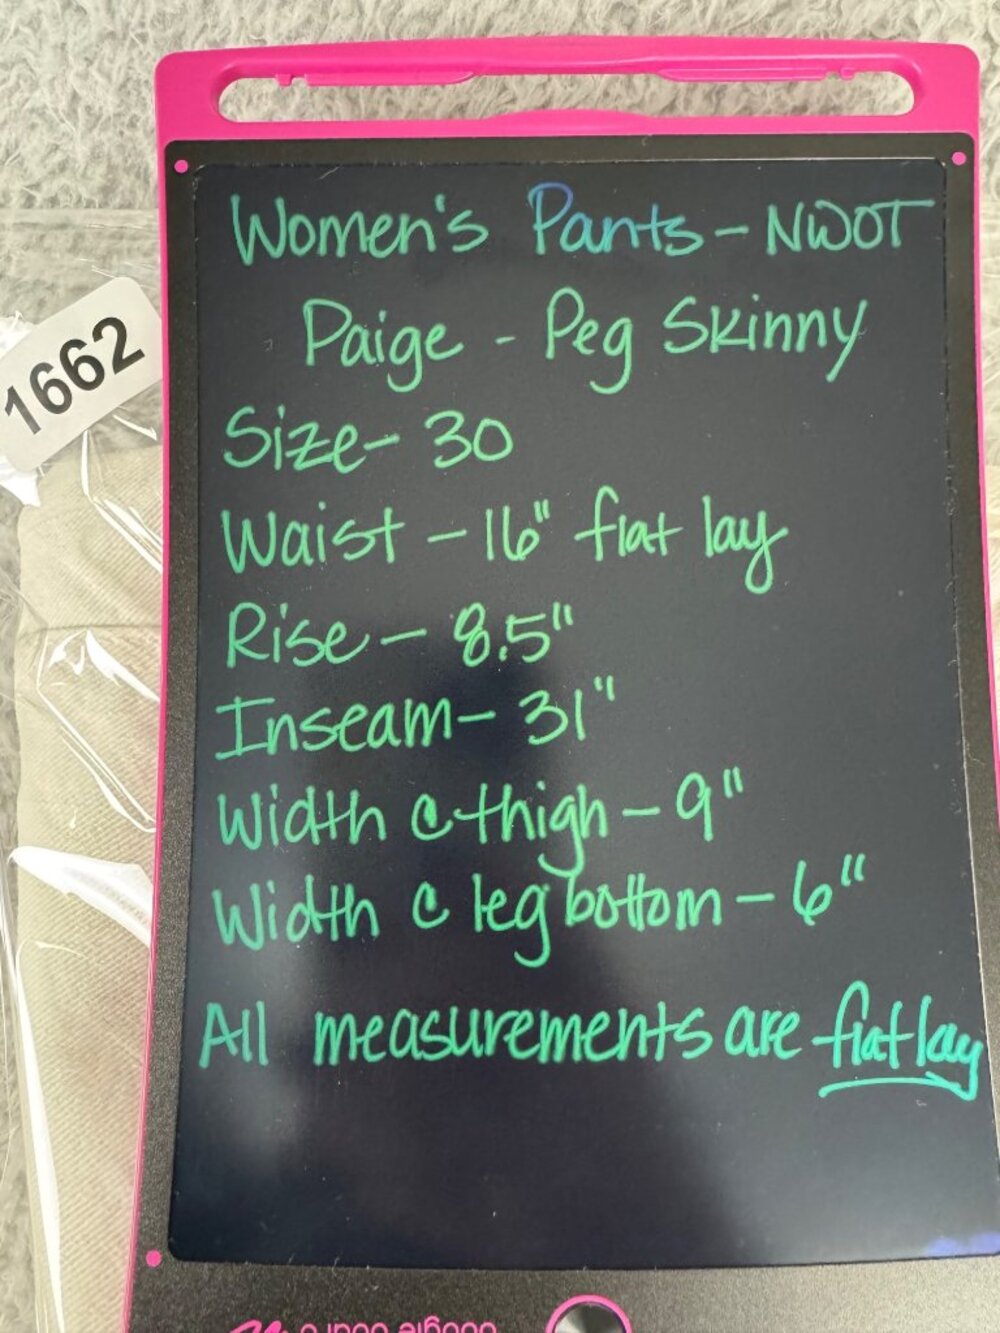 Women's Pants - NWOT
Paige - Peg Skinny
1662
Size - 30
Waist - 16" flat lay
Rise - 8.5"
Inseam - 31"
Width @ thigh - 9"
Width @ leg bottom - 6"
All measurements are flat lay